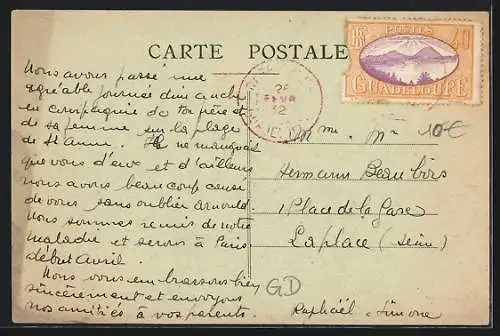 CARTE POSTALE
POSTES
RF 40
GUADELOUPE
26
FEVR
32
10€
Nous avons passé une
agréable journée dimanche
en compagnie de ton père et
de sa femme sur la plage
de St Anne. Il ne manquait
que vous d'eux et d'ailleurs
nous avons beaucoup causé
de vous sans oublier Arnould.
Nous sommes remis de notre
maladie et serons à Paris
début Avril.
Nous vous embrassons bien
sincèrement et envoyons
nos amitiés à vos parents.
Mme. Mr
Hermann Beaubois
1 Place de la Gare
Laplace (Seine)
GD
Raphaël - Simone